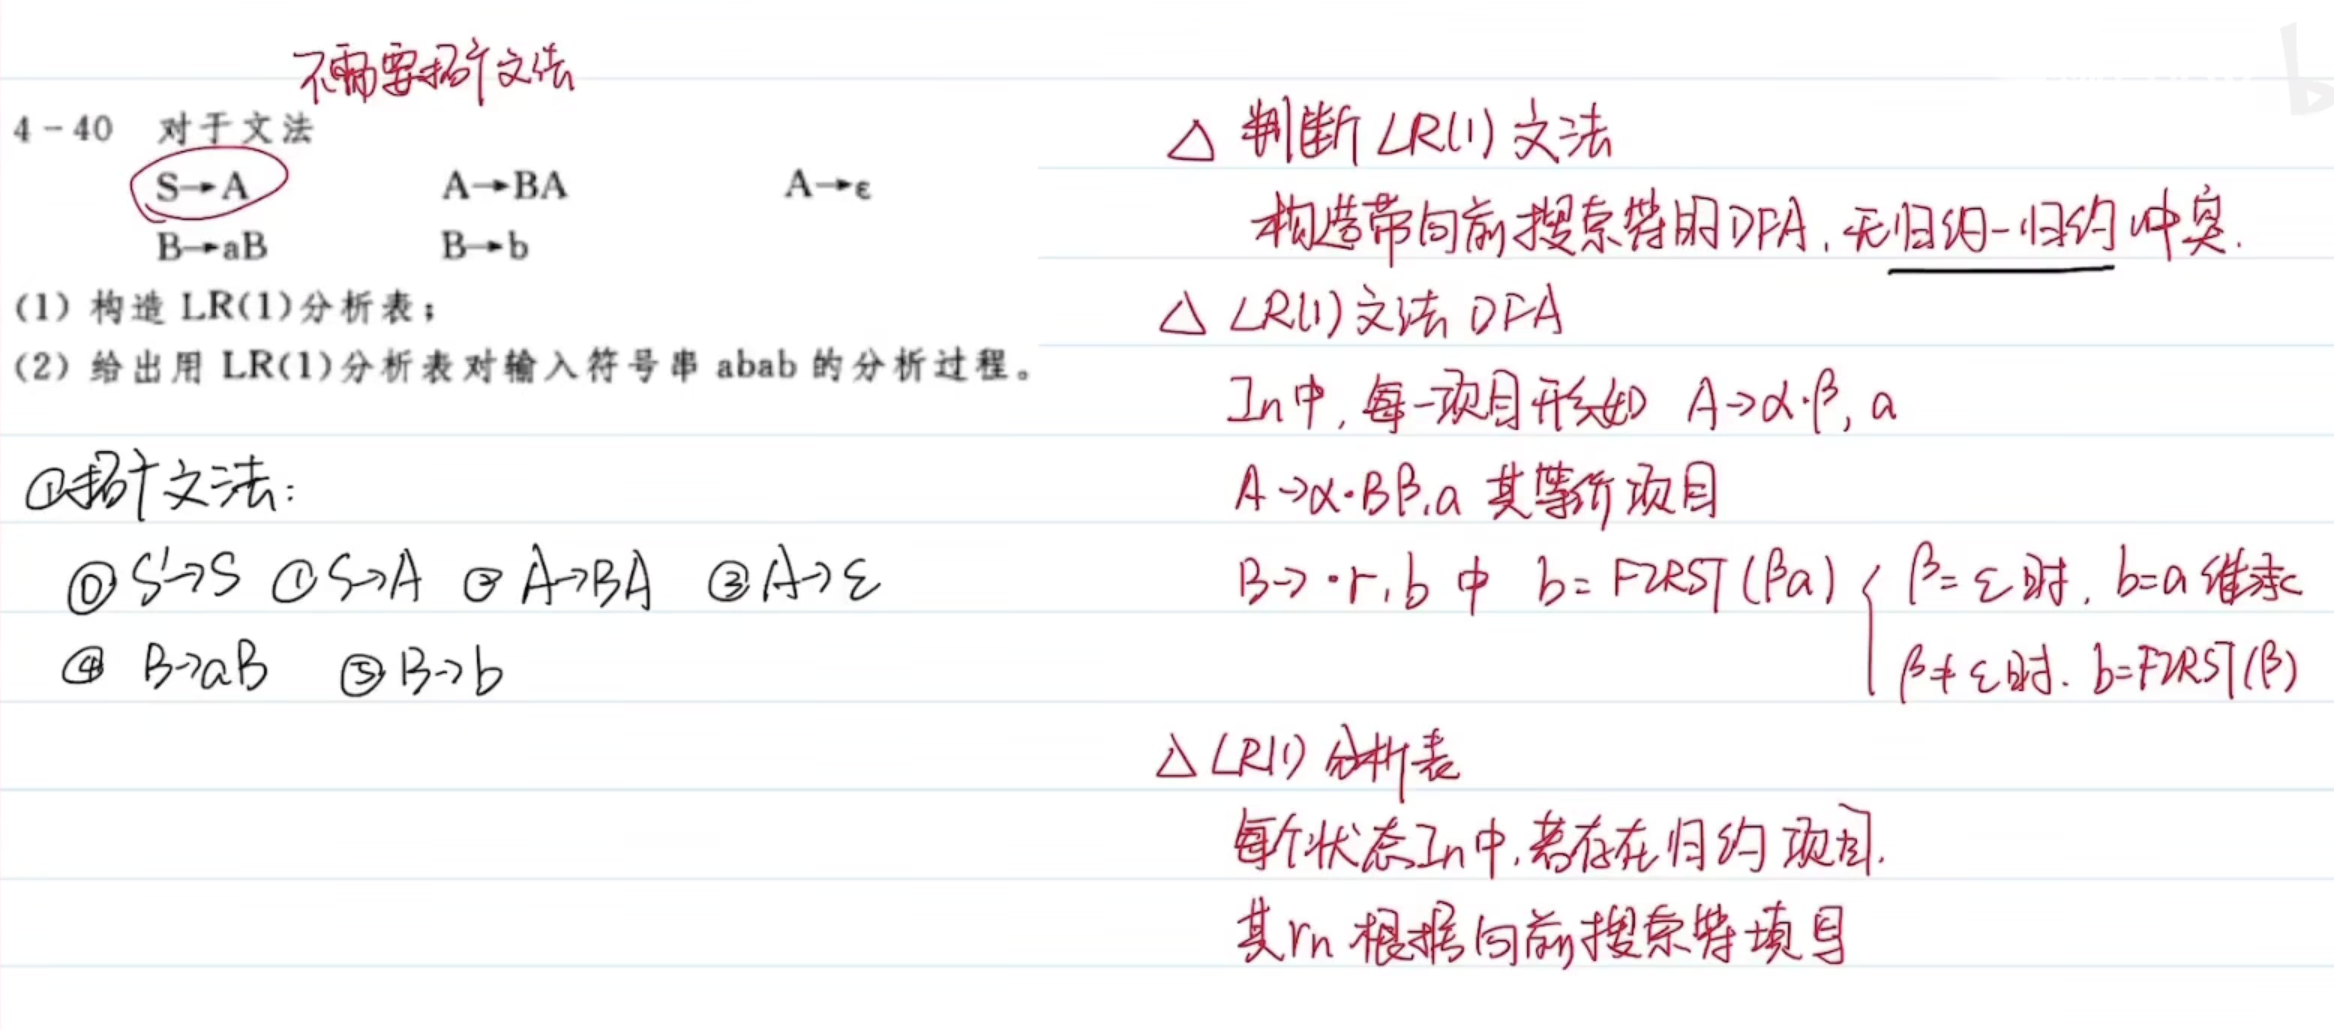 不需要拓广文法
4-40 对于文法
S→A A→BA A→ε
B→aB B→b
(1) 构造 LR(1)分析表;
(2) 给出用 LR(1)分析表对输入符号串 abab 的分析过程。
①拓广文法:
⓪ S'→S ① S→A ② A→BA ③ A→ε
④ B→aB ⑤ B→b
△ 判断 LR(1) 文法
构造带向前搜索符的DFA, 无归约-归约冲突.
△ LR(1)文法 DFA
In中, 每一项目形如 A→α·β, a
A→α·Bβ, a 其等价项目
B→·r, b 中 b= FIRST(βa) { β=ε时, b=a 继承
β≠ε时. b=FIRST(β)
△ LR(1) 分析表
每个状态In中, 若存在归约项目.
其rn 根据向前搜索符填写